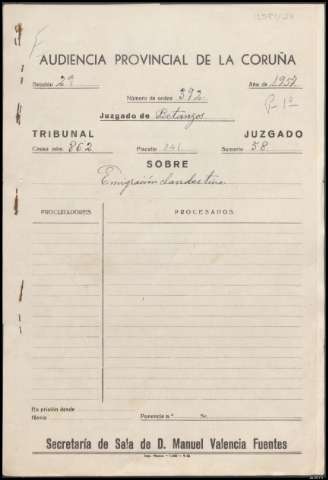 AUDIENCIA PROVINCIAL DE LA CORUÑA
Sección 2ª Año de 1957
Número de orden 392
P. 1º
Juzgado de Betanzos
TRIBUNAL JUZGADO
Causa núm. 862 Rscutio 241 Sumario 58
SOBRE
Emigración clandestina
PROCURADORES PROCESADOS
En prisión desde
fianza Ponencia n.º Sr.
Secretaría de Sala de D. Manuel Valencia Fuentes